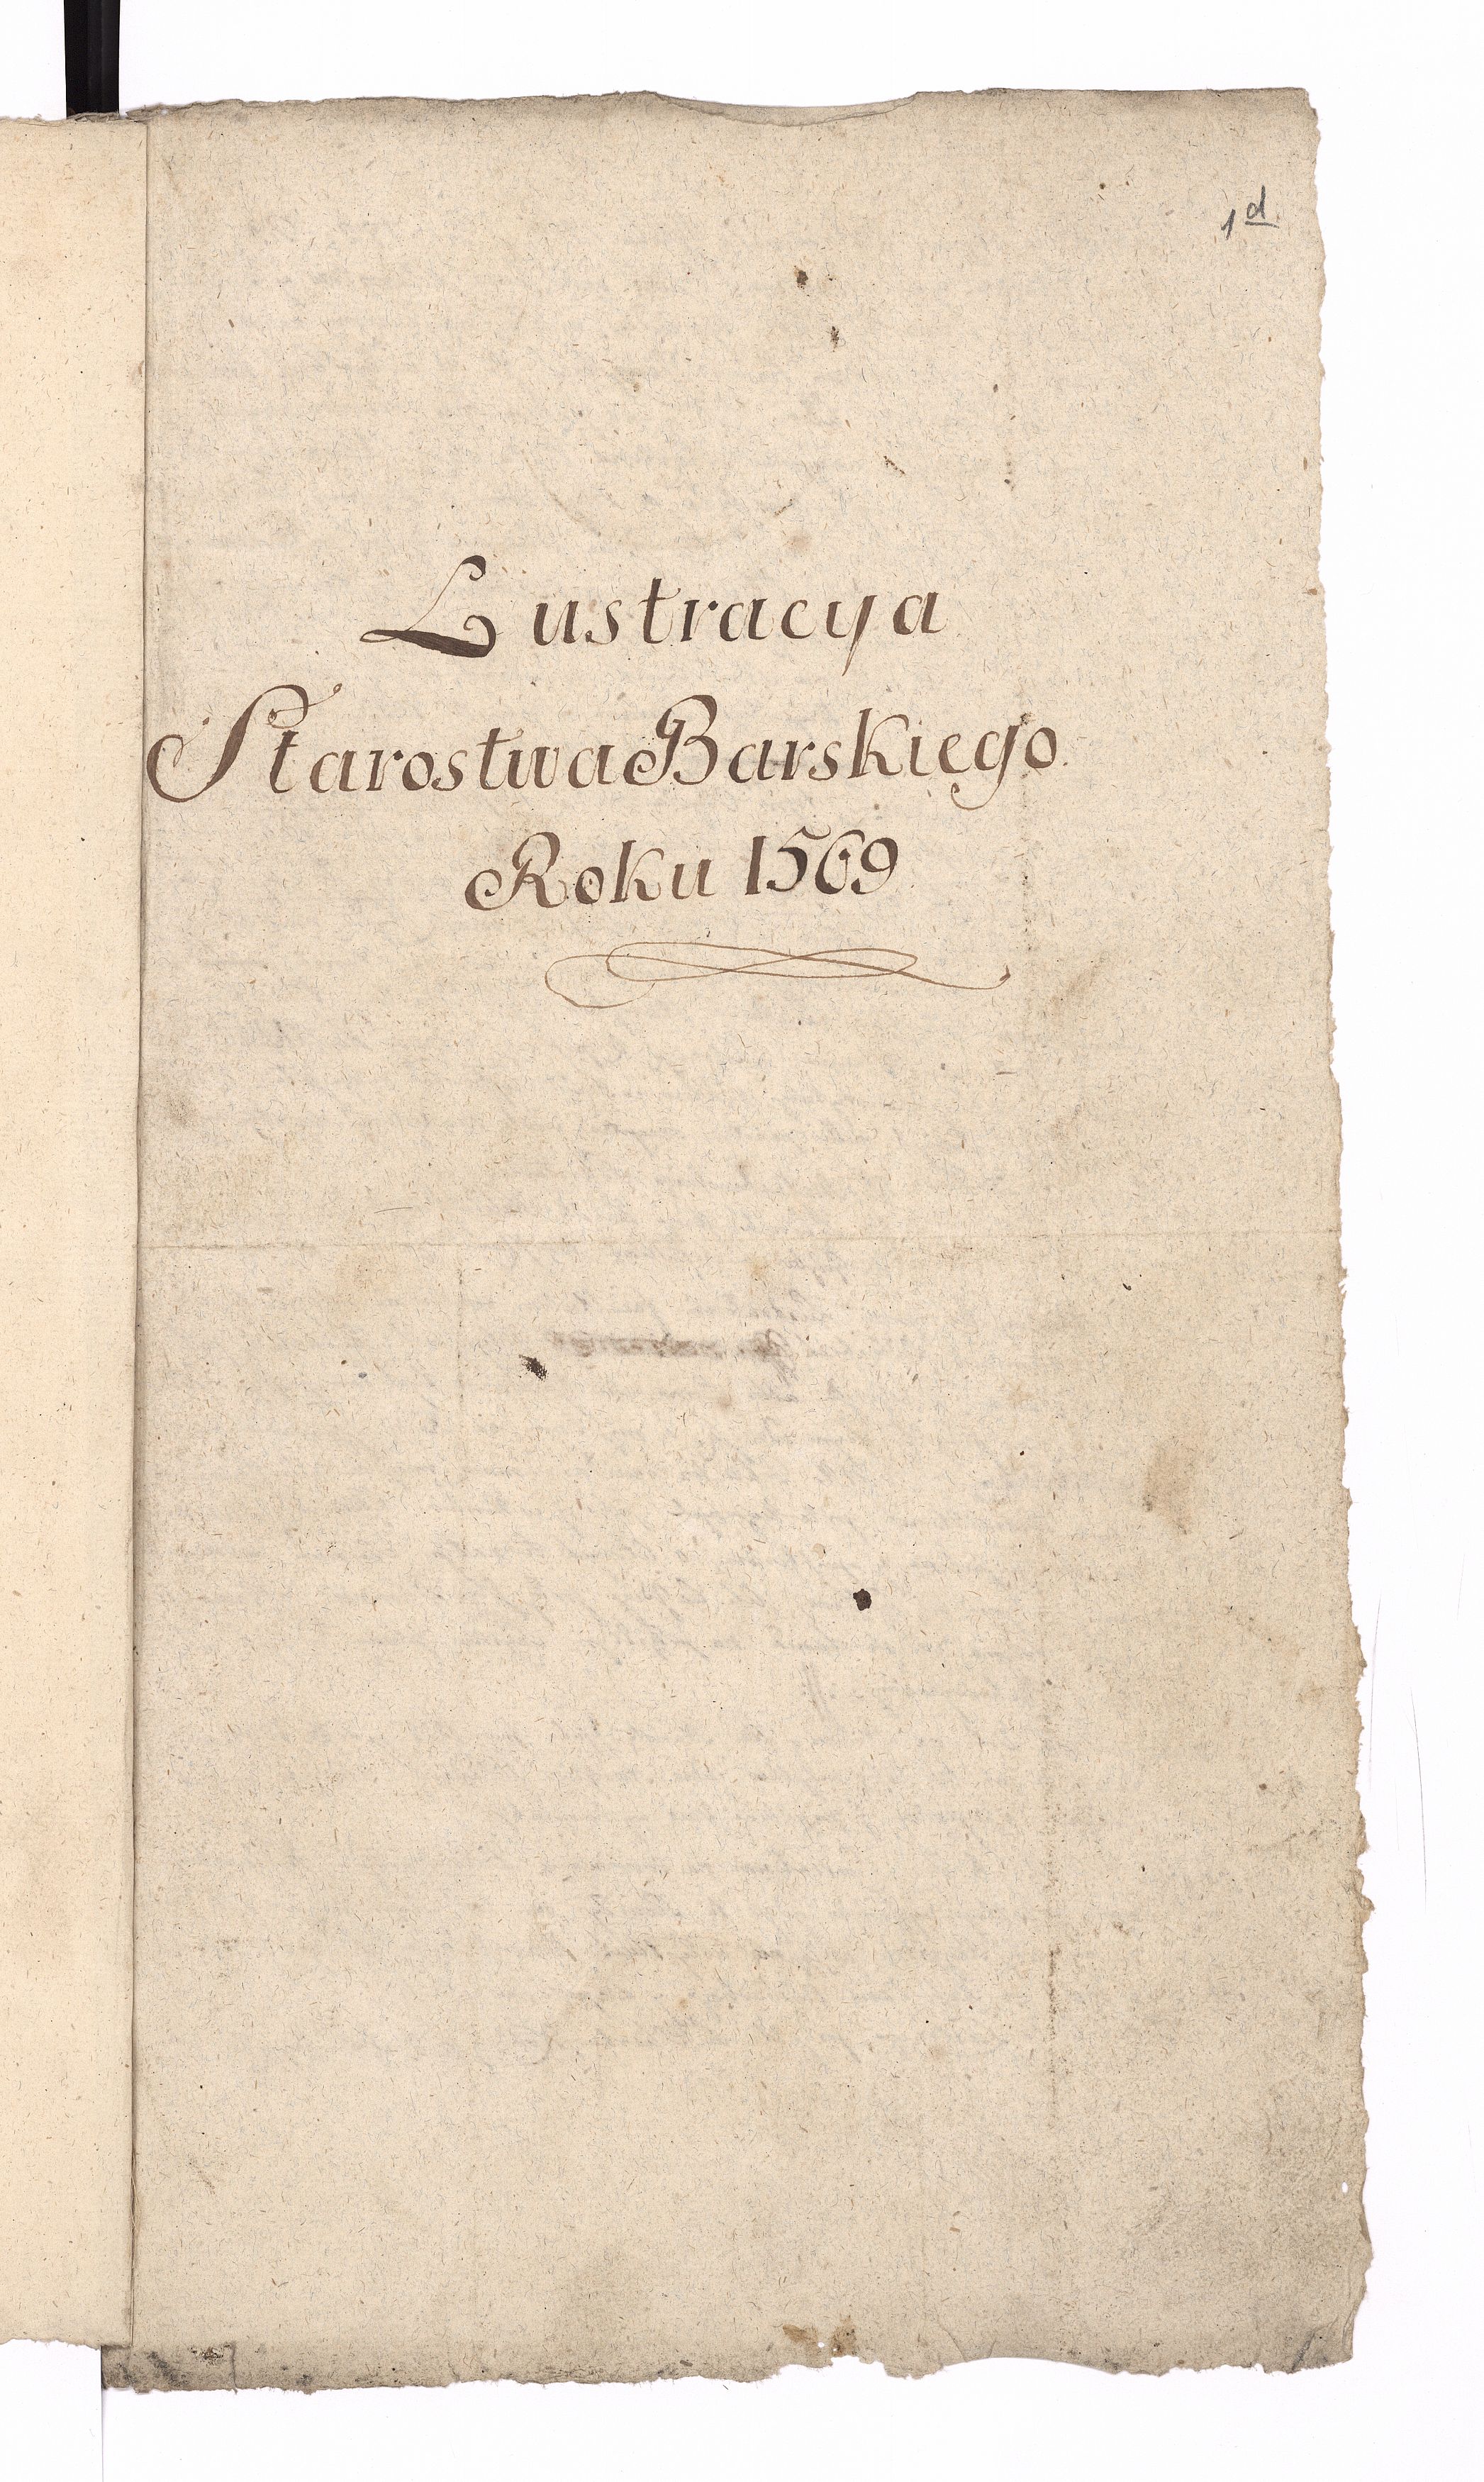 1d
Lustracya
Starostwa Barskiego
Roku 1569